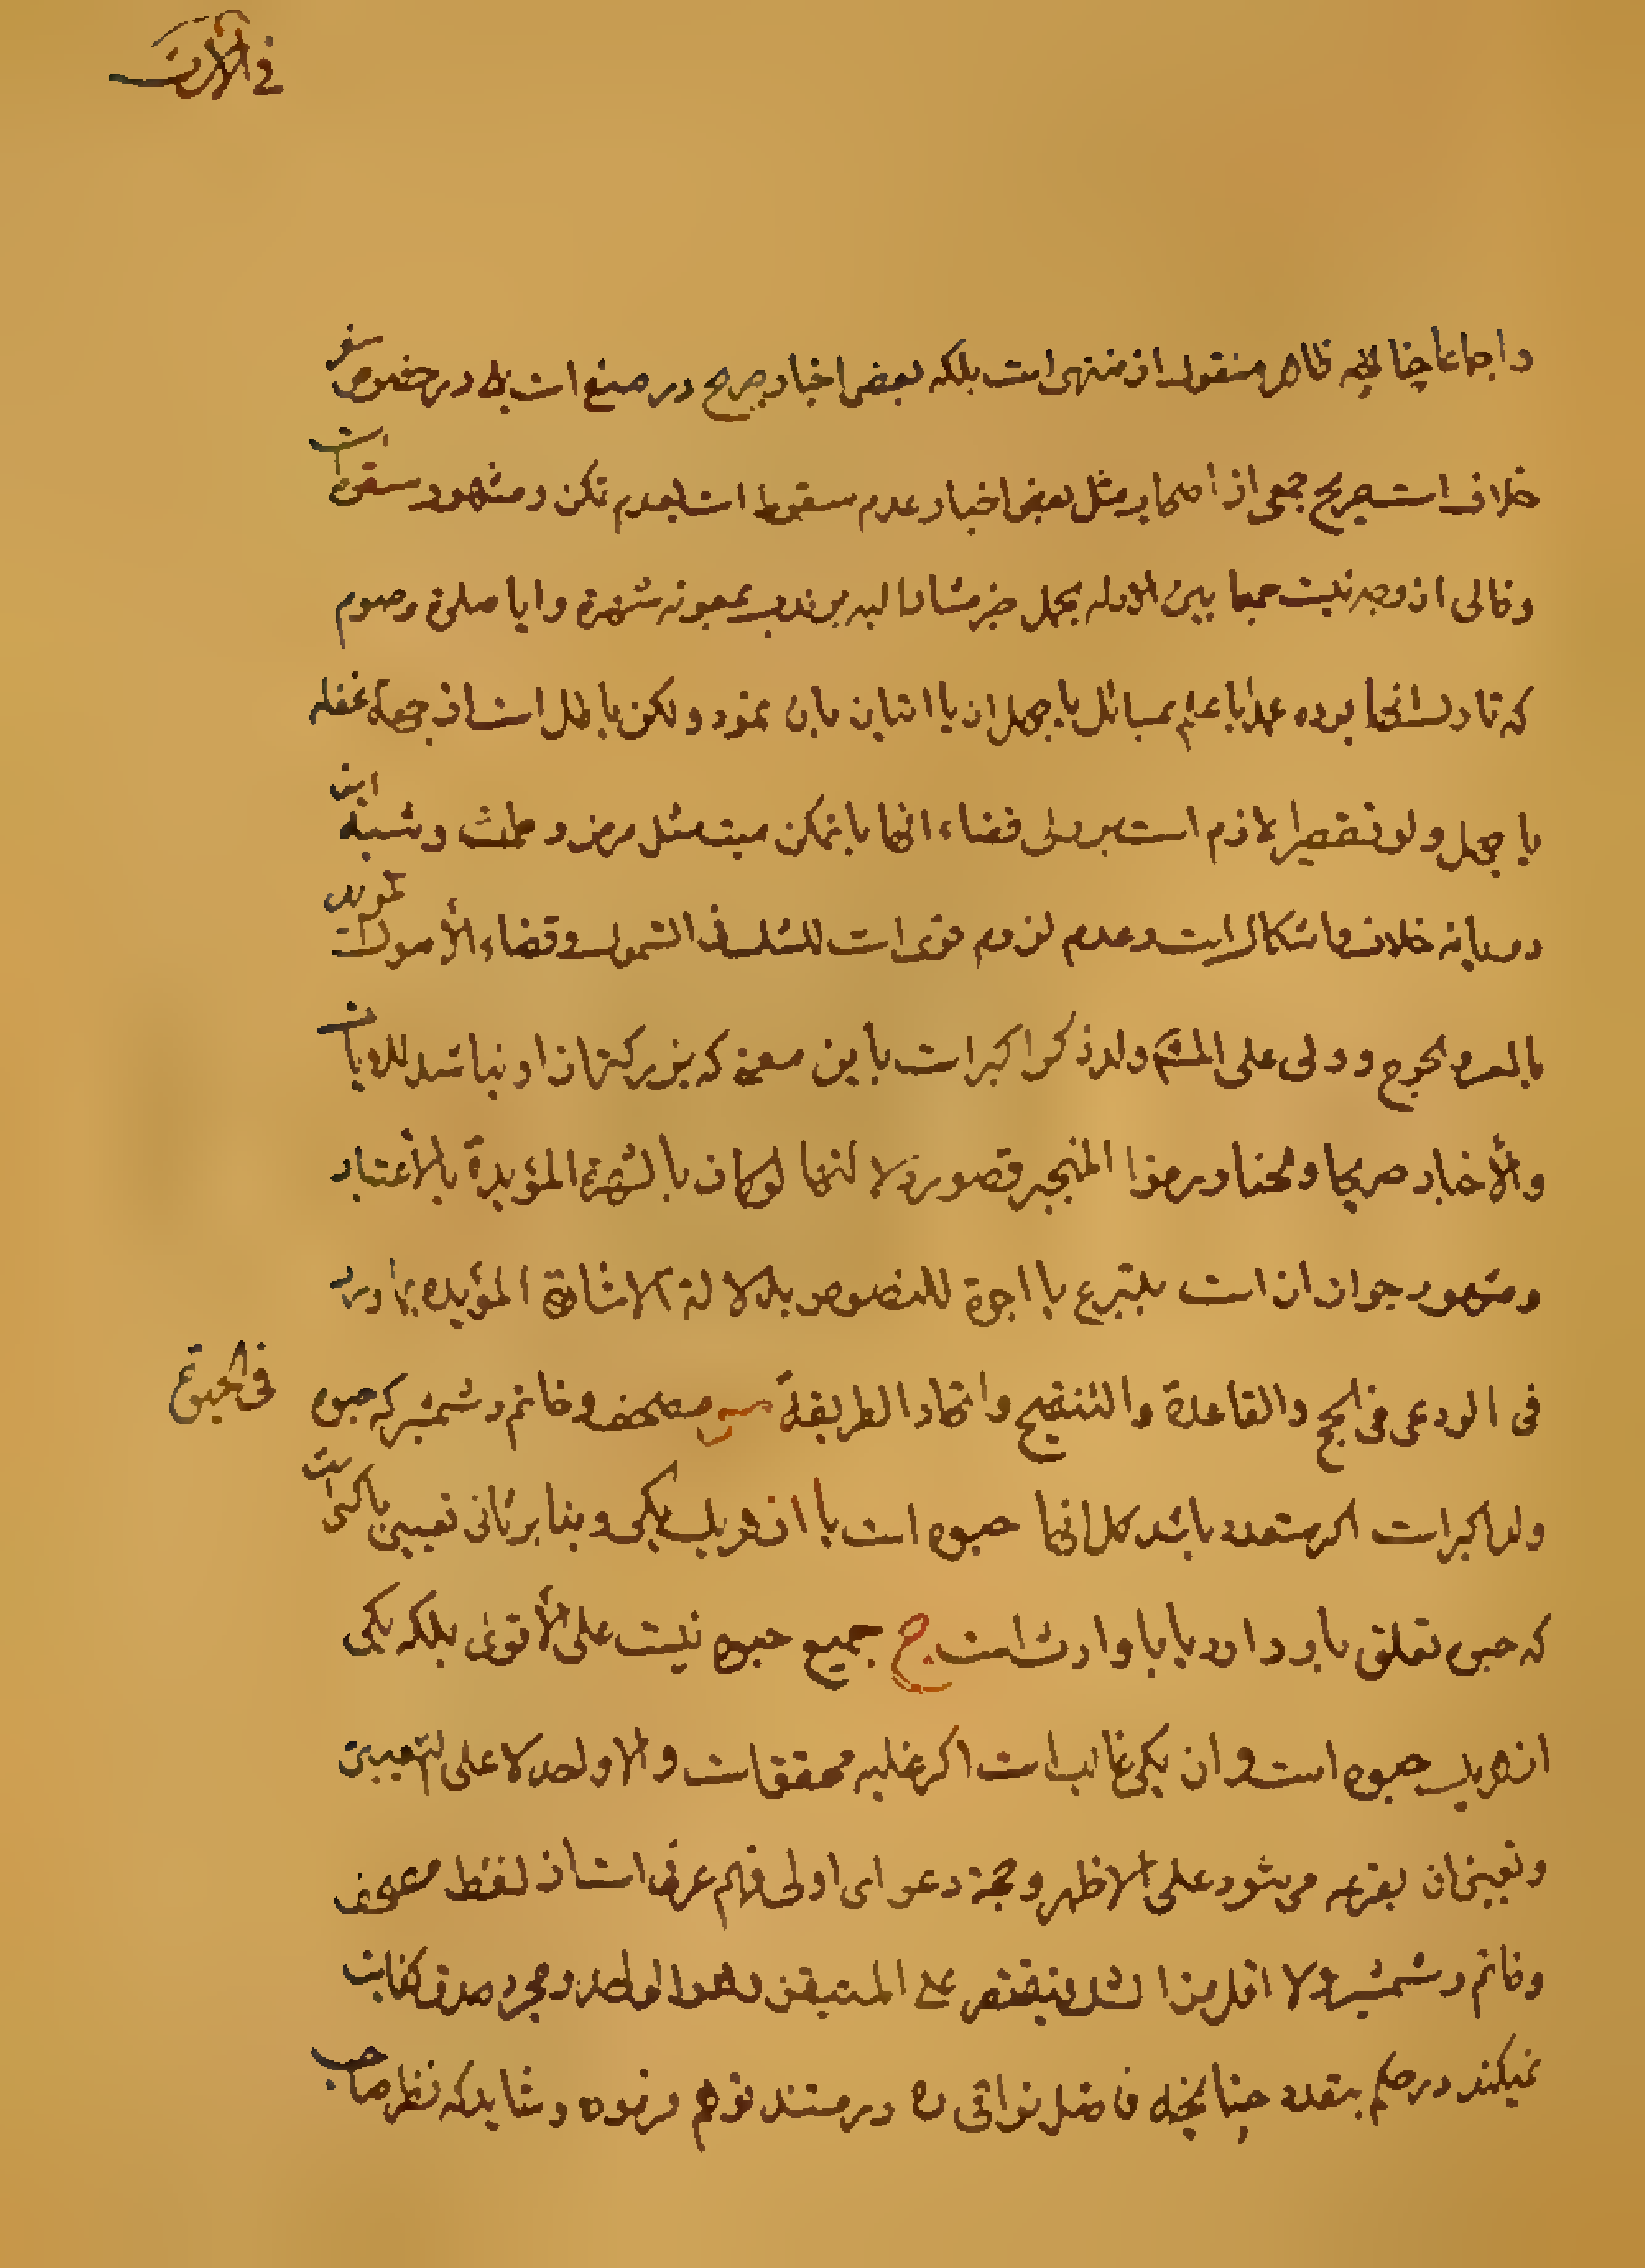 فی الأرث
و اجماعا چنانچه ظاهر منقول از منتهی است بلکه بعض اخبار صریح در منع است بلی در خصوص سفر
خلاف است صریح جمعی از اصحاب مثل بعض اخبار عدم سقوط است بعدم تمکن و مشهور سقوط است
و خالی از وجه نیست جمعا بین الادله بحمل خبر مشار الیه بر ندب بمعونه شهرة و ایا صلوة و صوم
که تارک انها بوده عمدا با علم بمسائل یا جهل ان یا اتیان بان نمود و لکن باطل است از جهة غفله
یا جهل و لو تقصیرا لازم است بر ولی قضاء انها با تمکن میت مثل مرض و طمث و شبه این
در میانه خلاف و اشکال است و عدم لزوم قوی است للشک فی الشمول و قضاء الأموات
بالعسر و الحرج و ولی علی المشهور ولد ذکور اکبر است باین معنی که بزرکتر از او نباشد للدیان
و الأخبار صریحا و لحنا و رمزا المنجبر قصور دلالتها لو کان بالشهرة المؤیدة بالأعتبار
و مشهور جواز ان است بتبرع یا اجرة للنصوص بدلالة الاشارة المؤیده بما ورد
فی الودعی فی الحج و القاعدة و التنقیح و اتحاد الطریقة س مصحف و خاتم و شمشیر که حبوه
فی الحبوة
ولد اکبر است اکر متعدد باشد کل انها حبوه است یا از هر یک یکی و بنا بر ثانی تعیین با کیست
که حبوه تعلق باو دارد یا با وارث است ج جمیع حبوه نیست علی الأقوی بلکه یکی
از هر یک حبوه است و ان یکی غالب است اکر غلبه محقق است و الا واحد لا علی التعیین
و تعیین ان بقرعه می شود علی الاظهر و حجة دعوای اولی فهم عرف است از لفظ مصحف
و خاتم و شمشیر و لا اقل من الشک فیقتصر علی المتیقن و هو الواحد و مجرد صدق کفایت
نمیکند در حکم بتعدد چنانچه فاضل نراقی ره در مستند توهم فرموده و شاید که نظر صاحب